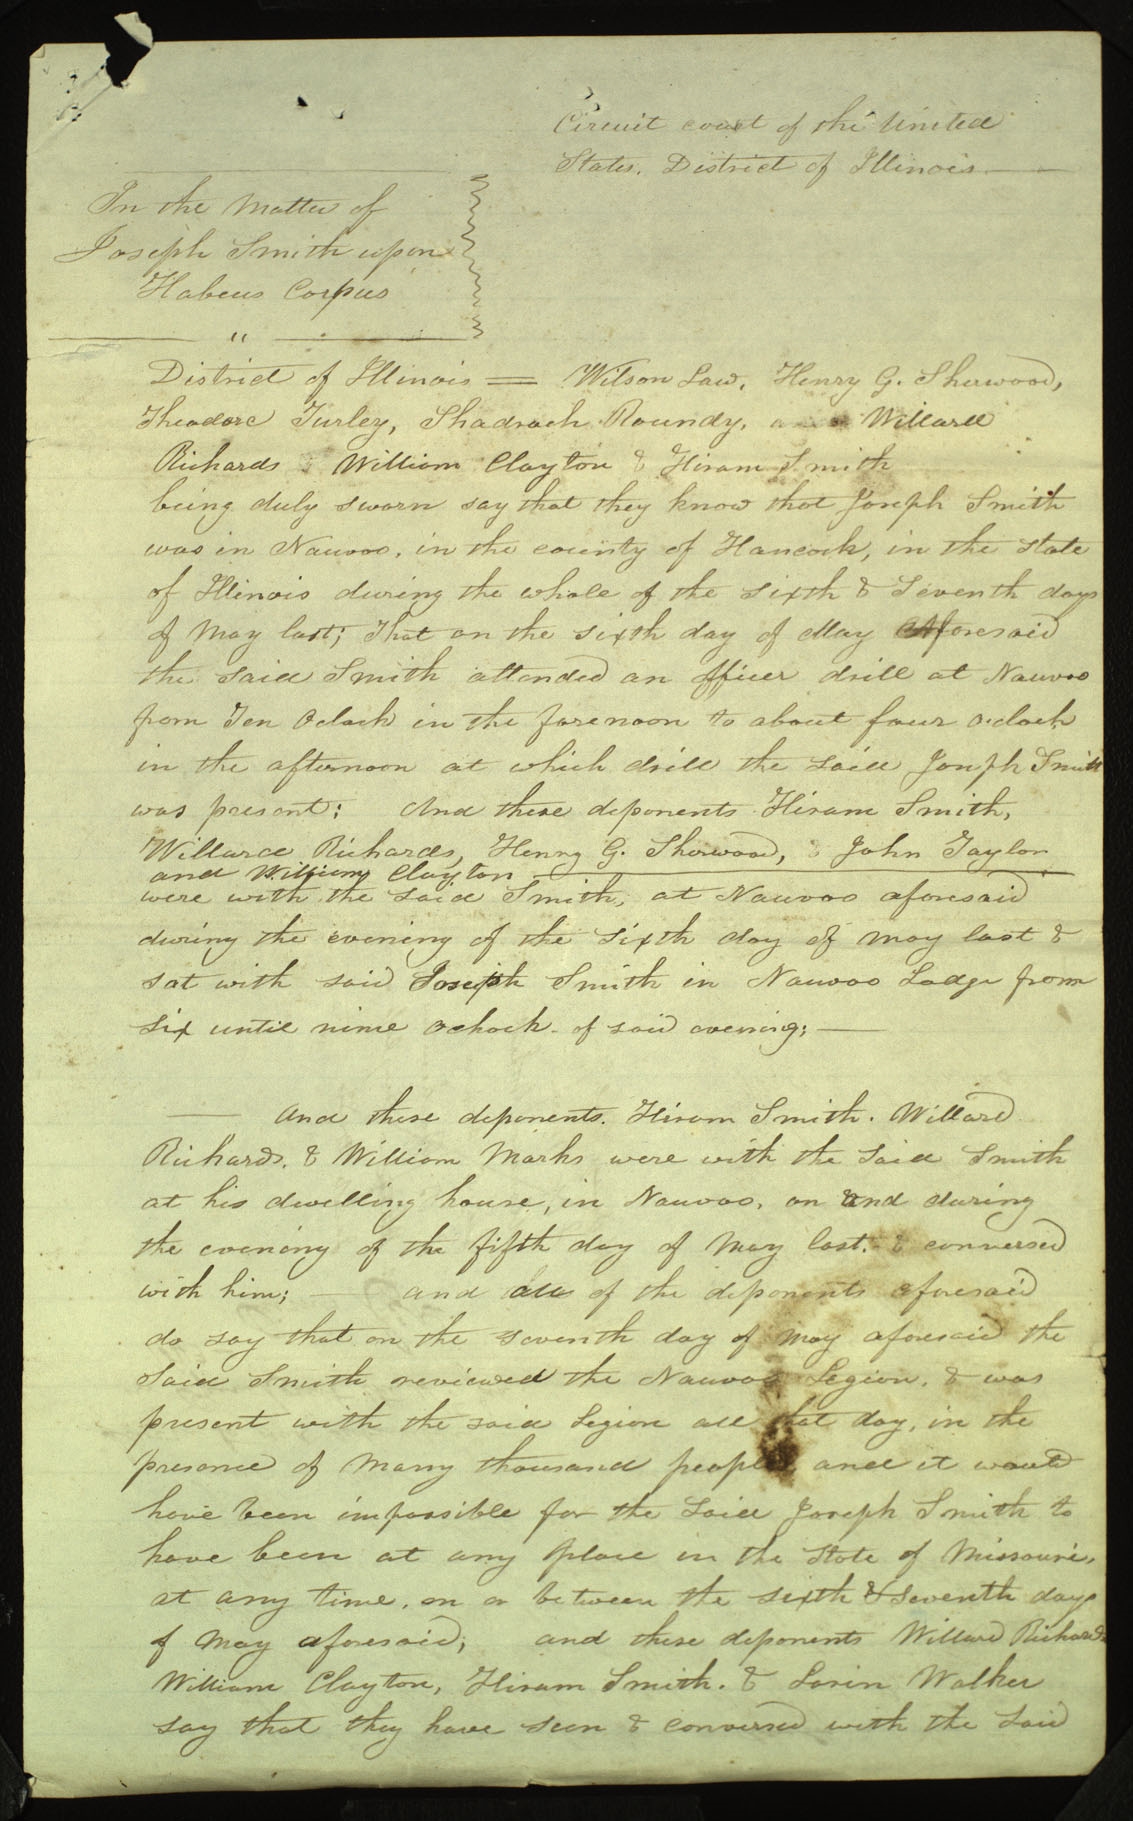 Circuit court of the United
States. District of Illinois —
In the Matter of
Joseph Smith upon
Habeus Corpus
"
District of Illinois = Wilson Law, Henry G. Sherwood,
Theodore Turley, Shadrach Roundy, Willard
Richards & William Clayton & Hiram Smith
being duly sworn say that they know that Joseph Smith
was in Nauvoo, in the county of Hancock, in the state
of Illinois during the whole of the sixth & Seventh days
of May last; That on the sixth day of May Aforesaid
the said Smith attended an officer drill at Nauvoo
from Ten Oclock in the forenoon to about four o.clock
in the afternoon at which drill the said Joseph Smith
was present: And these deponents Hiram Smith,
Willard Richards, Henry G. Sherwood, & John Taylor
and William Clayton
were with the said Smith, at Nauvoo aforesaid
during the evening of the Sixth day of May last &
sat with said Joseph Smith in Nauvoo Lodge from
six until nine oclock. of said evening; —
— And these deponents. Hiram Smith. Willard
Richards. & William Marks were with the said Smith
at his dwelling house, in Nauvoo, on and during
the evening of the fifth day of May last. & conversed
with him; — and all of the deponents aforesaid
do say that on the seventh day of May aforesaid the
said Smith reviewed the Nauvoo Legion. & was
present with the said Legion all that day, in the
presence of Many thousand people and it would
have been impossible for the said Joseph Smith to
have been at any place in the State of Missouri,
at any time, on or between the sixth & seventh days
of May aforesaid; and these deponents Willard Richards
William Clayton, Hiram Smith. & Lorin Walker
say that they have seen & conversed with the said